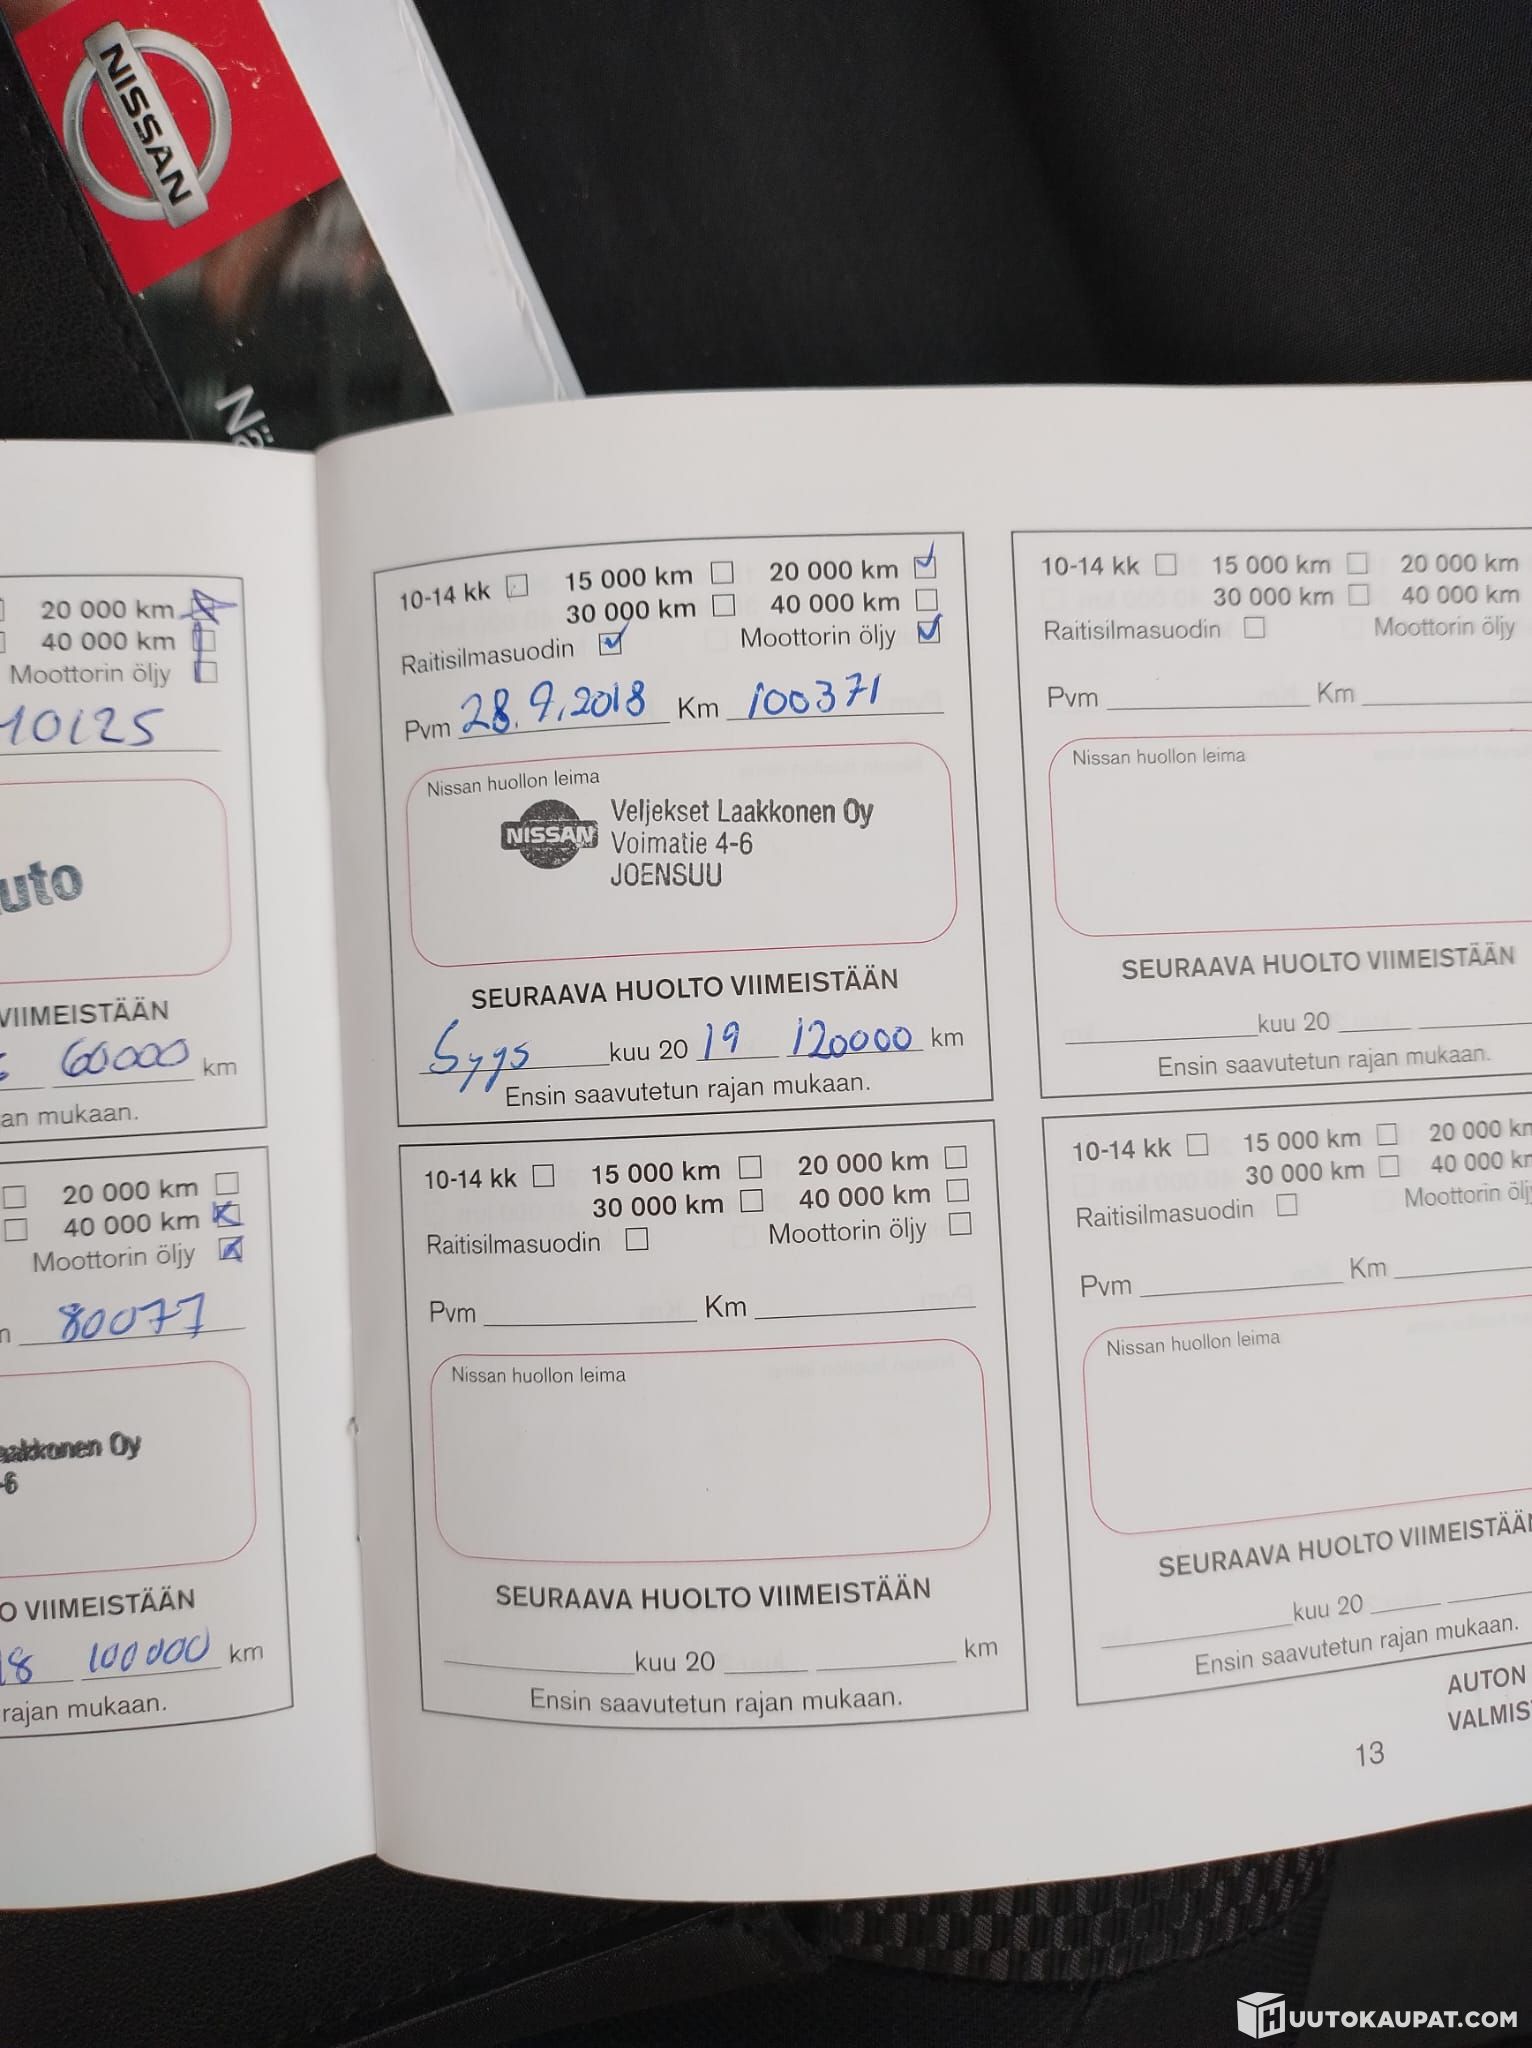 NISSAN
Nä
20 000 km
40 000 km
Moottorin öljy
10125
uto
VIIMEISTÄÄN
60000 km
an mukaan.
20 000 km
40 000 km
Moottorin öljy
80077
aakkonen Oy
-6
O VIIMEISTÄÄN
18 100000 km
rajan mukaan.
10-14 kk 15 000 km 20 000 km
30 000 km 40 000 km
Raitisilmasuodin Moottorin öljy
Pvm 28.9.2018 Km 100371
Nissan huollon leima
NISSAN
Veljekset Laakkonen Oy
Voimatie 4-6
JOENSUU
SEURAAVA HUOLTO VIIMEISTÄÄN
Syys kuu 20 19 120000 km
Ensin saavutetun rajan mukaan.
10-14 kk 15 000 km 20 000 km
30 000 km 40 000 km
Raitisilmasuodin Moottorin öljy
Pvm Km
Nissan huollon leima
SEURAAVA HUOLTO VIIMEISTÄÄN
kuu 20 km
Ensin saavutetun rajan mukaan.
10-14 kk 15 000 km 20 000 km
30 000 km 40 000 km
Raitisilmasuodin Moottorin öljy
Pvm Km
Nissan huollon leima
SEURAAVA HUOLTO VIIMEISTÄÄN
kuu 20
Ensin saavutetun rajan mukaan.
10-14 kk 15 000 km 20 000 km
30 000 km 40 000 km
Raitisilmasuodin Moottorin öljy
Pvm Km
Nissan huollon leima
SEURAAVA HUOLTO VIIMEISTÄÄN
kuu 20
Ensin saavutetun rajan mukaan.
AUTON
VALMIS
13
HUUTOKAUPAT.COM